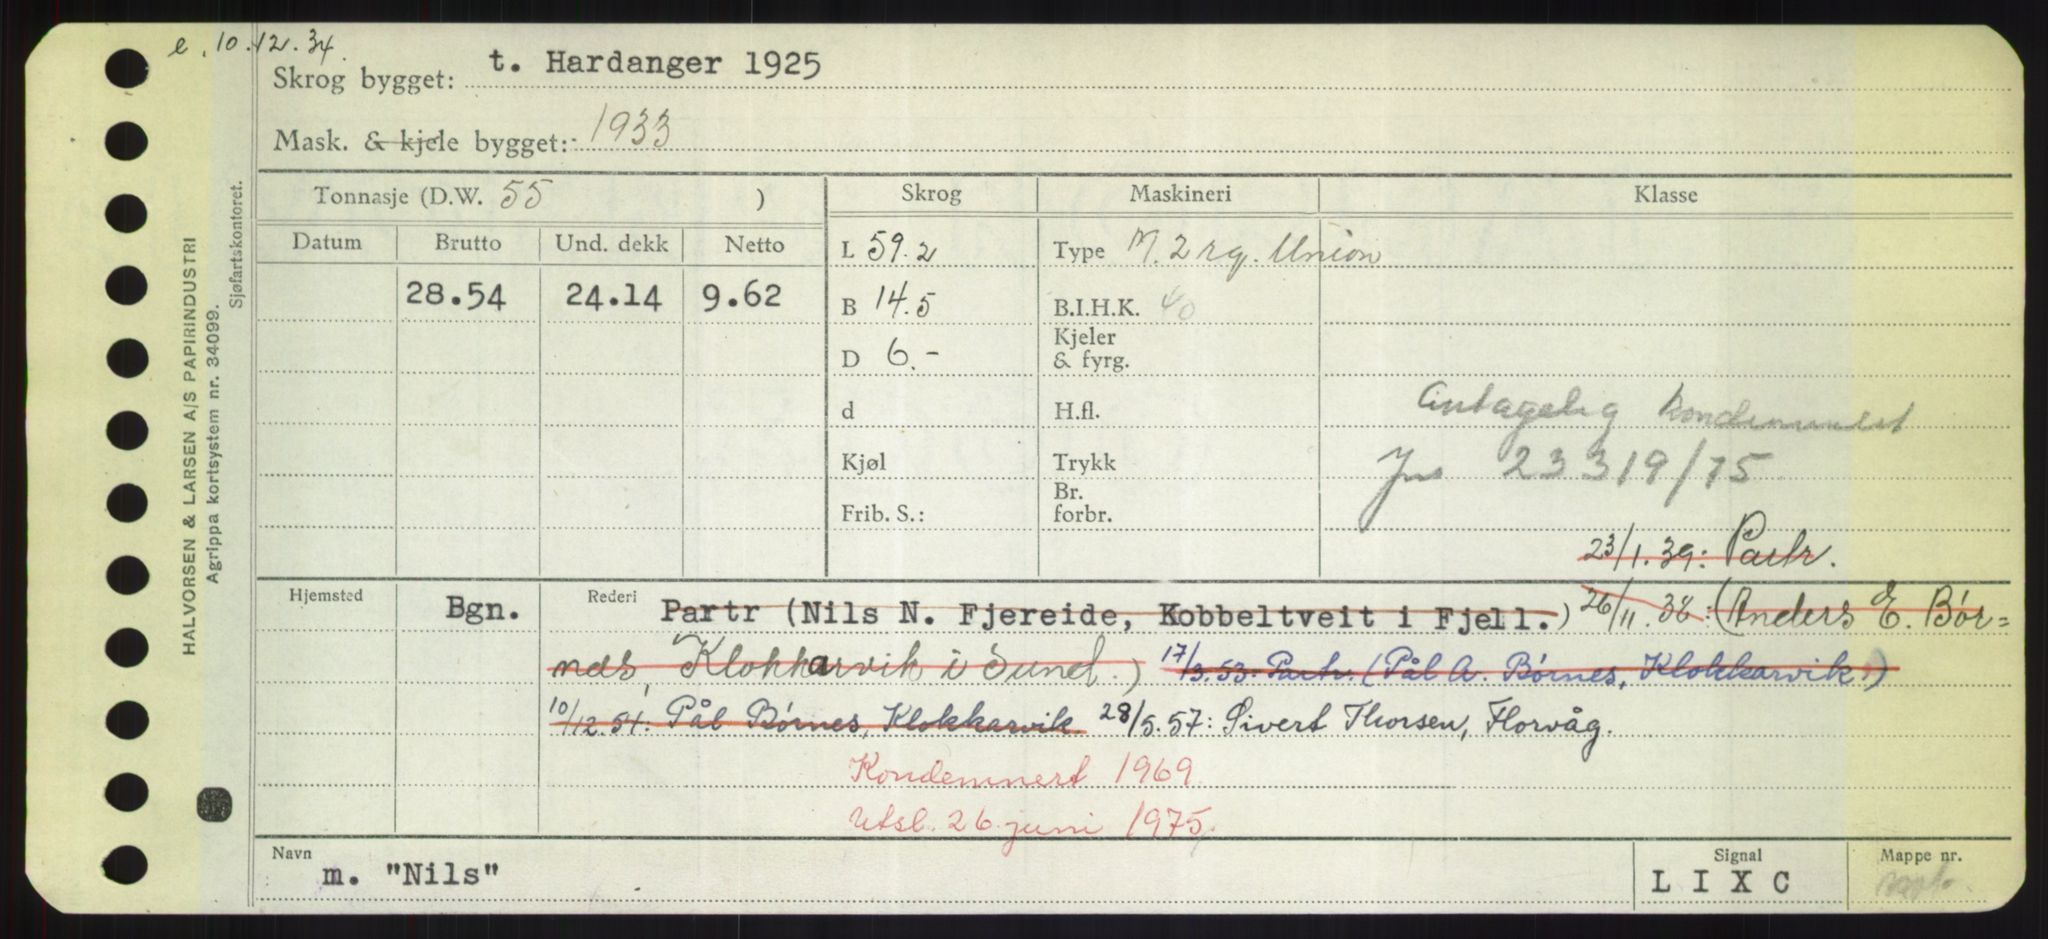 e. 10.12.34.
Skrog bygget: t. Hardanger 1925
Mask. & kjele bygget: 1933
Tonnasje (D.W. 55 ) Skrog Maskineri Klasse
Datum Brutto Und. dekk Netto L 59.2 Type M. 2 rg. Union
28.54 24.14 9.62 B 14.5 B.I.H.K. 40
D 6.- Kjeler & fyrg.
d H.fl. Antagelig kondemnert
Kjøl Trykk Jns 23319/75
Frib. S.: Br. forbr.
23/1.39: Partr.
Hjemsted Bgn. Rederi Partr (Nils N. Fjereide, Kobbeltveit i Fjell.) 26/11.38: (Anders E. Bør=
nes, Klokkarvik i Sund.) 17/3.53: Partr. (Pål A. Børnes, Klokkarvik.)
10/12.54: Pål Børnes, Klokkarvik 28/5.57: Sivert Thorsen, Florvåg.
Kondemnert 1969.
Utsl. 26. juni 1975.
Navn m. "Nils" Signal LIXC Mappe nr.
HALVORSEN & LARSEN A/S PAPIRINDUSTRI
Agrippa kortsystem nr. 34099.
Sjøfartskontoret.